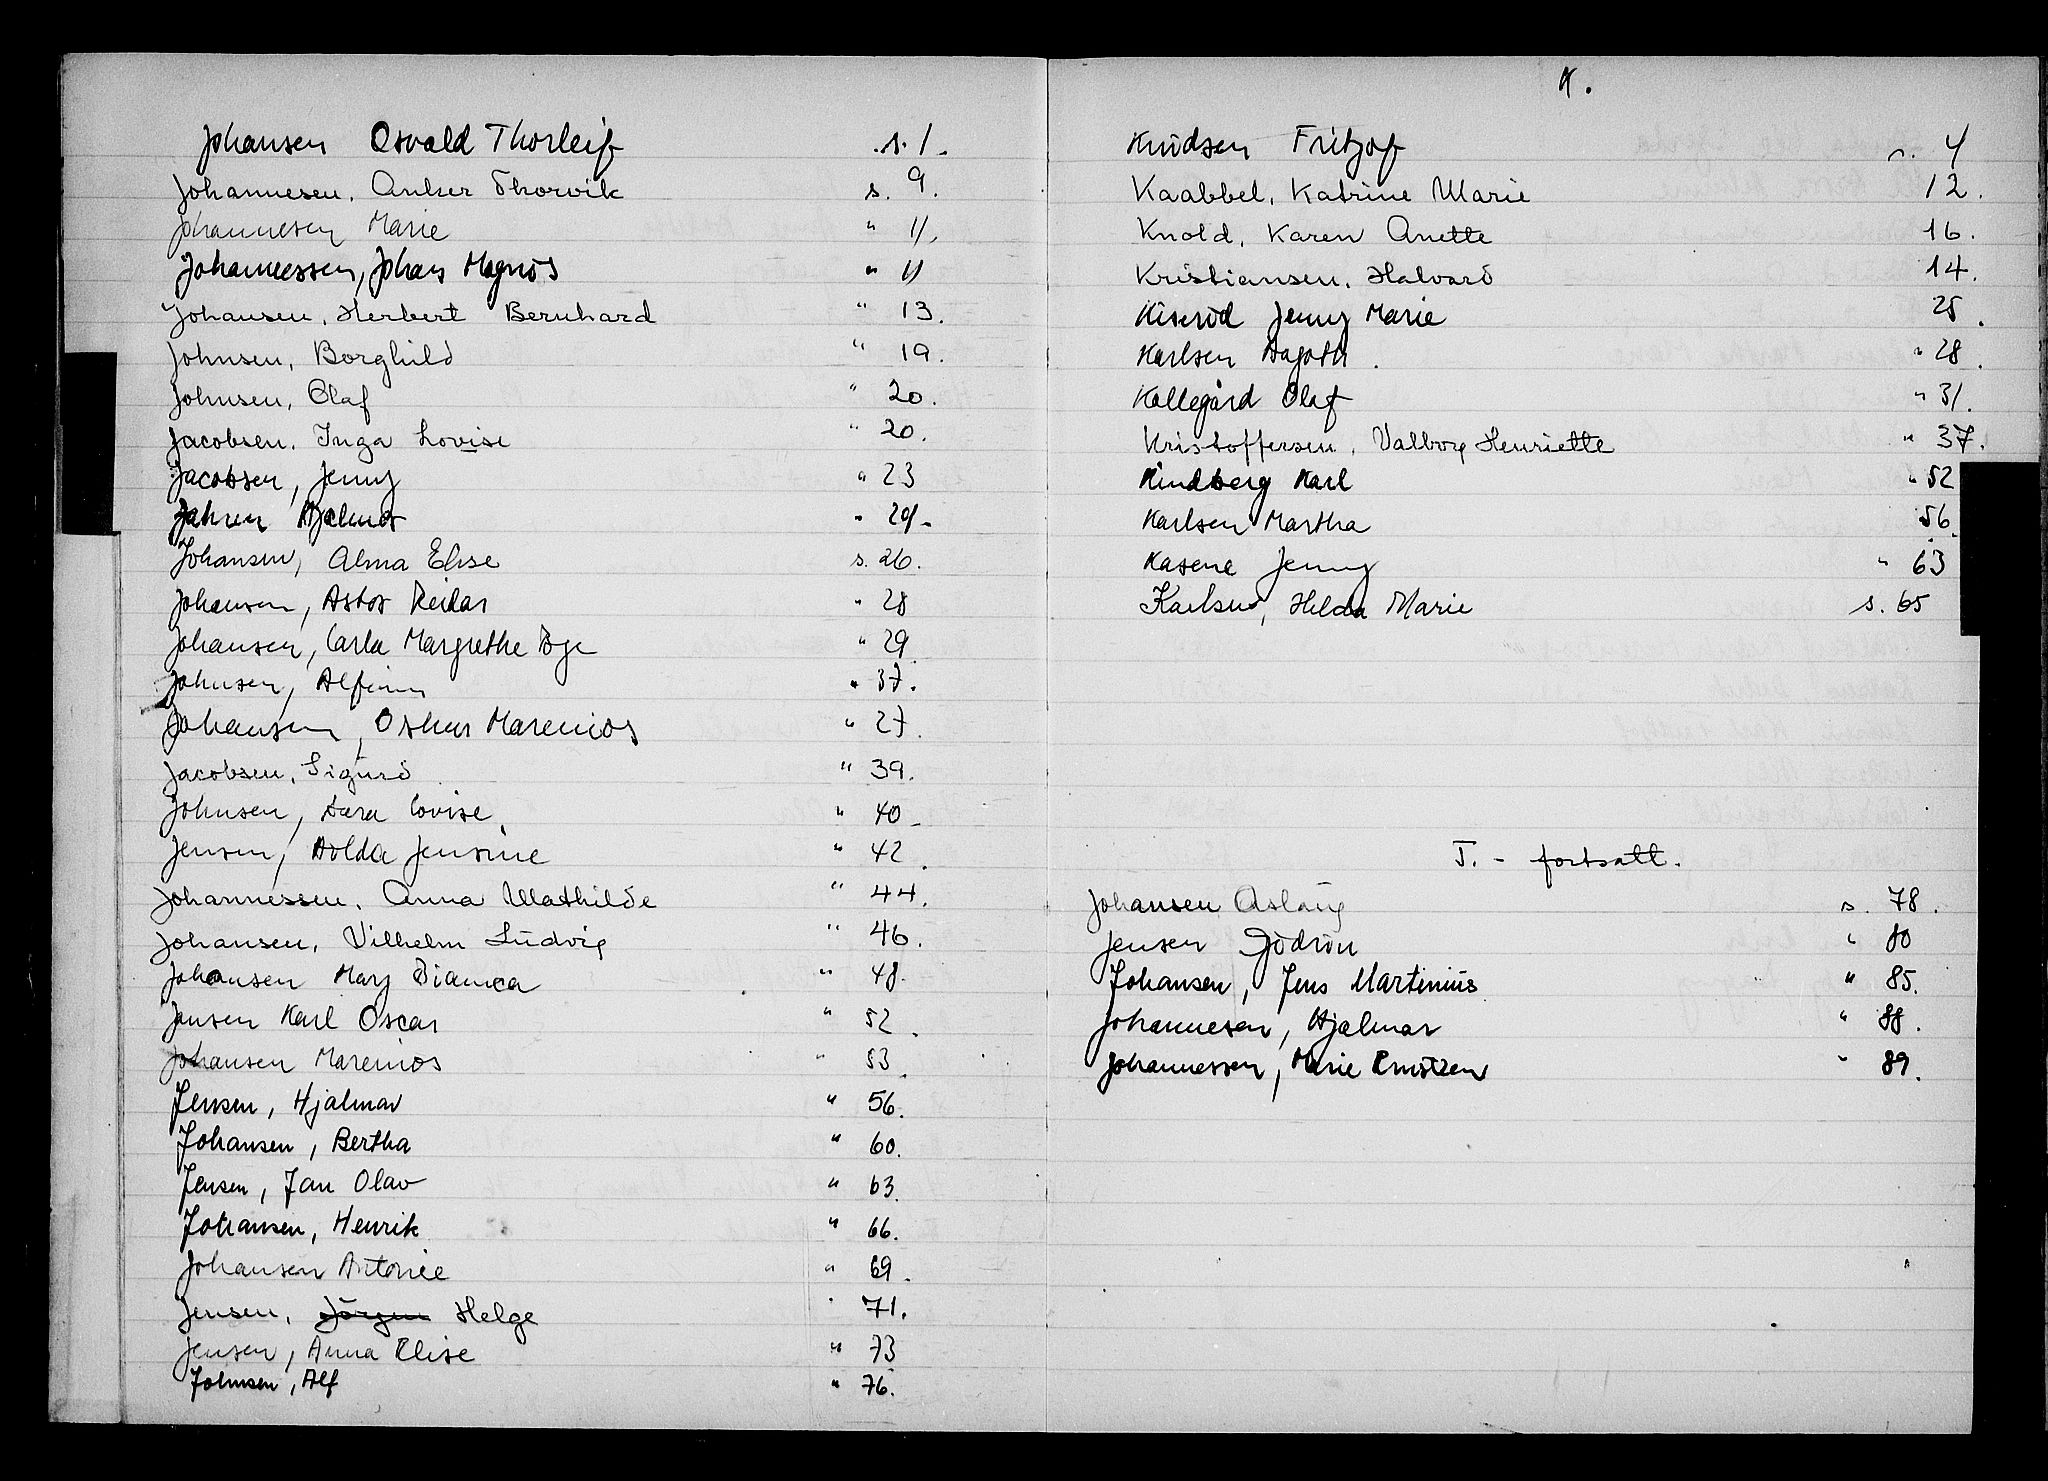 Johansen Osvald Thorleif s. 1.
Johannesen, Anker Thorvik s. 9.
Johannesen Marie " 11.
Johannessen, Johan Magnus " 11
Johansen, Herbert Bernhard " 13.
Johnsen, Borghild " 19.
Johnsen, Olaf " 20.
Jacobsen, Inga Lovise " 20.
Jacobsen, Jenny " 23
Jahren Hjalmar "
Johansen, Alma Elise s. 26.
Johansen, Astor Reidar " 28
Johansen, Carla Margrethe " 29
Johnsen, Alfinn " 37.
Johansen, Oskar Marenius " 27.
Jacobsen, Sigurd " 39.
Johnsen, Sara Lovise " 40
Jensen, Hulda Jensine " 42.
Johannessen, Anna Mathilde " 44.
Johansen, Vilhelm Ludvig " 46.
Johansen Mary Bianca " 48.
Jansen Karl Oscar " 52.
Johansen Marenius " 53.
Jensen, Hjalmar " 56.
Johansen, Bertha " 60.
Jensen, Jan Olav " 63.
Johansen, Henrik " 66.
Johansen Antonie " 69.
Jensen, Jörgen Helge " 71.
Jensen, Anna Elise " 73
Johnsen, Alf " 76.
K.
Knudsen Fritjof s. 4
Kaabbel, Katrine Marie 12.
Knold, Karen Anette 16.
Kristiansen, Halvard 14.
Kiserud Jenny Marie 25.
Karlsen Dagoth " 28.
Kollegård Olaf " 31.
Kristoffersen, Valborg Henriette " 37.
Kindberg Karl " 52
Karlsen Martha 56.
Kasene Jenny " 63
Karlsen, Helda Marie s. 65
J. - fortsatt.
Johansen Aslaug s. 78.
Jensen Gudrun " 80
Johansen, Jens Martinius " 85.
Johannesen, Hjalmar " 88.
Johannessen, Marie Knutzen " 89.